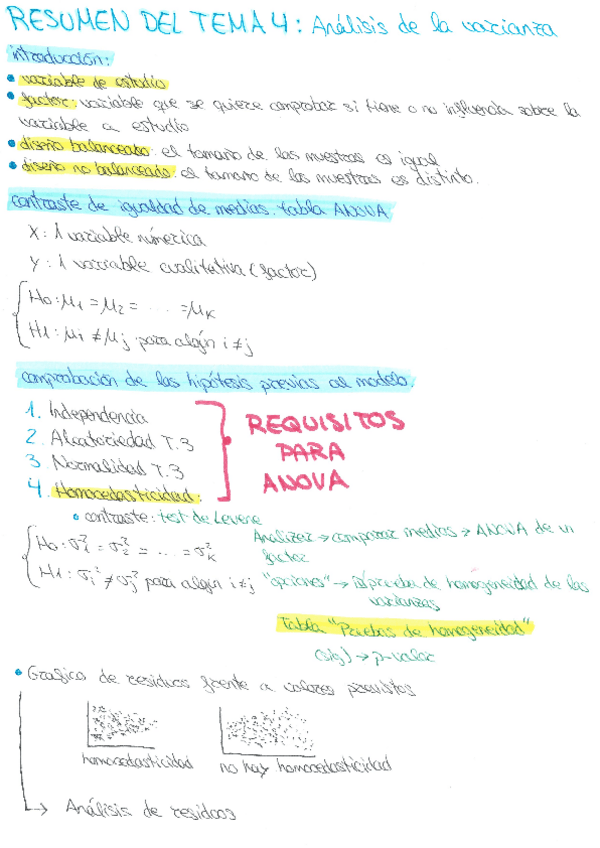 RESUMEN DEL TEMA 4: Análisis de la varianza
introducción:
• variable de estudio
• factor: variable que se quiere comprobar si tiene o no influencia sobre la
variable a estudio
• diseño balanceado: el tamaño de las muestras es igual
• diseño no balanceado: el tamaño de las muestras es distinto.
contraste de igualdad de medias. tabla ANOVA
X: 1 variable númerica
Y: 1 variable cualitativa (factor)
H0: μ1 = μ2 = .... = μK
H1: μi ≠ μj para algún i ≠ j
comprobación de las hipótesis previas al modelo.
1. Independencia
2. Aleatoriedad T.3
3 Normalidad T.3
4. Homocedasticidad:
REQUISITOS
PARA
ANOVA
• contraste: test de Levene
H0: σ1² = σ2² = ... = σK²
H1: σi² ≠ σj² para algún i ≠ j
Analizar → comparar medias → ANOVA de un
factor
"opciones" → ☒ prueba de homogeneidad de las
varianzas
Tabla "Pruebas de homogeneidad"
(sig) → p-valor
• Grafico de residuos frente a valores previstos
homocedasticidad
no hay homocedasticidad
↳ Análisis de residuos